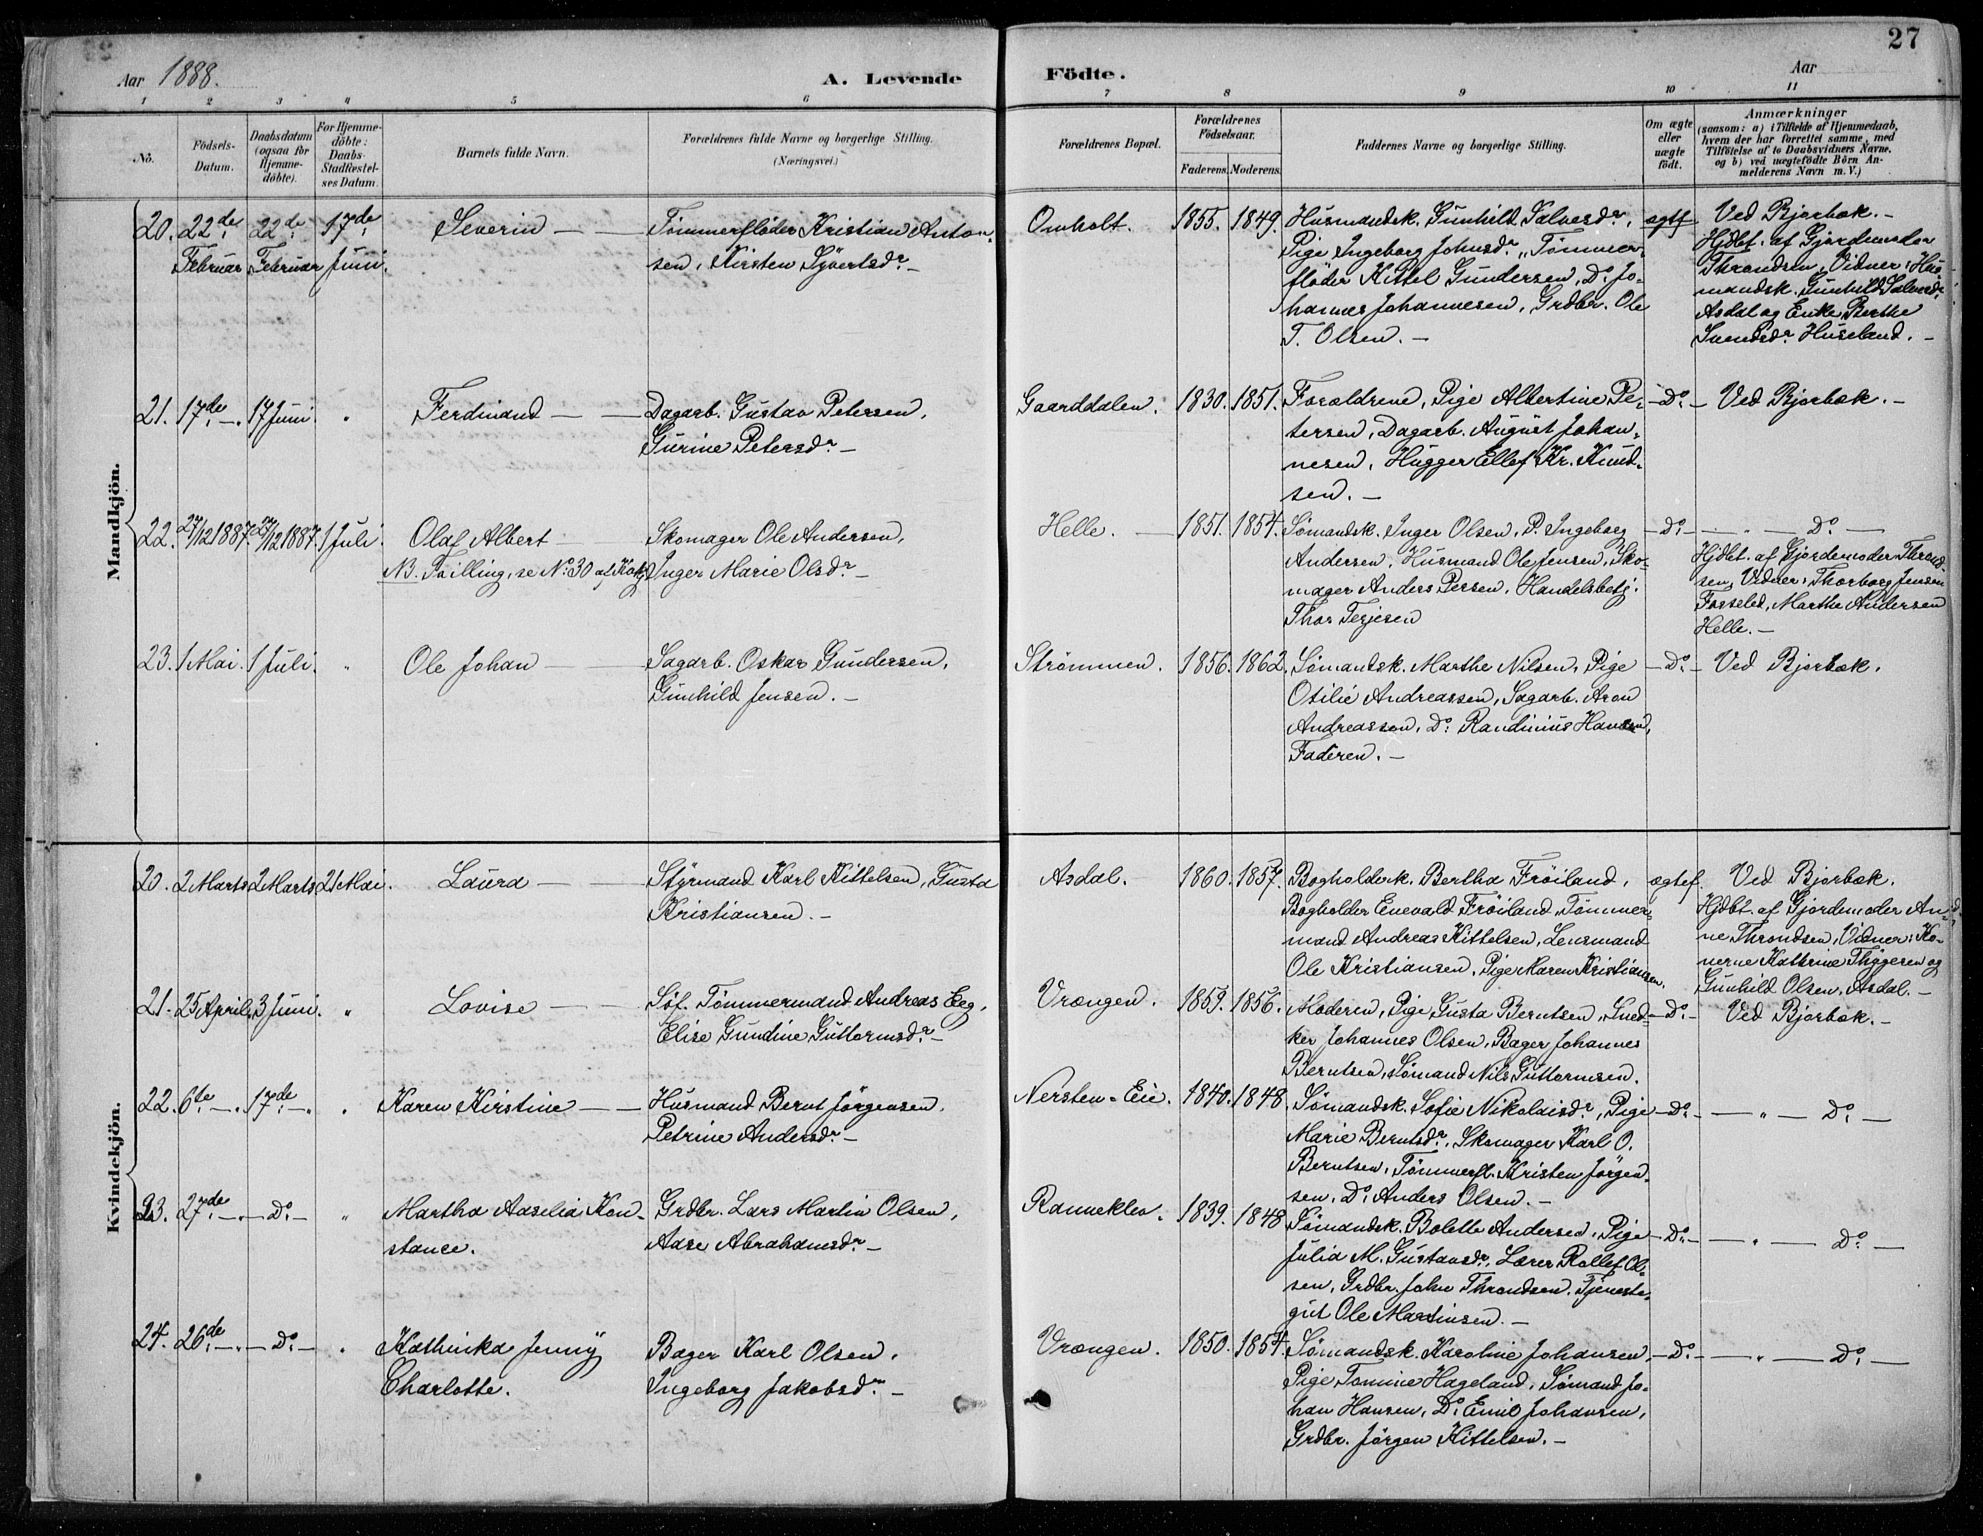 27
Aar 1888. A. Levende Födte. Aar
1 2 3 4 5 6 7 8 9 10 11
No.
Födsels-Datum.
Daabsdatum (ogsaa for Hjemmedöbte).
For Hjemmedöbte: Daabs-Stadfæstelses Datum.
Barnets fulde Navn.
Forældrenes fulde Navne og borgerlige Stilling. (Næringsvei.)
Forældrenes Bopæl.
Forældrenes Födselsaar.
Faderens. Moderens.
Faddernes Navne og borgerlige Stilling.
Om ægte eller uægte födt.
Anmærkninger
(saasom: a) i Tilfælde af Hjemmedaab,
hvem der har forrettet samme, med
Tilföielse af to Daabsvidners Navne,
og b) ved uægtefödte Börn An-
melderens Navn m. V.)
Mandkjön.
20. 22de Februar 22de Februar 17de Juni. Severin —
Tømmerfløder Kristian Anton-
sen, Kirsten Syvertsdr. —
Omholt. 1855. 1849.
Husmandsk. Gunhild Salvesdr.,
Pige Ingeborg Johnsdr., Tømmer-
fløder Kittel Gundersen, Do. Jo-
hannes Johannesen, Grdbr. Ole
T. Olsen. —
ægtf
Ved Bjorbæk. —
Hjdbt. af Gjordemoder
Throndsen, Vidner: Hus-
mandsk. Gunhild Salvesdr.
Asdal og Enke Berthe
Svendsdr. Huseland. —
21. 17de —„ 17 Juni „ Ferdinand —
Dagarb. Gustav Petersen,
Gurine Petersdr. —
Gaarddalen. 1830. 1851.
Forældrene, Pige Albertine Pe-
tersen, Dagarb. August Johan-
nesen, Hugger Ellef Kr. Knud-
sen. —
— Do. — Ved Bjorbæk. —
22. 27/12 1887. 27/12 1887. 1 Juli Olaf Albert —
NB. Tvilling, se No. 30 af Kvkj.
Skomager Ole Andersen,
Inger Marie Olsdr. —
Helle. — 1851. 1854.
Sømandsk. Inger Olsen, P. Ingeborg
Andersen, Husmand Ole Jensen, Sko-
mager Anders Persen, Handelsbetj.
Thor Terjesen
— Do. — — „ — Do. —
Hjdbt. af Gjordemoder Thrond-
sen, Vidner: Thorborg Jensen
Fosseled, Marthe Andersen
Helle. —
23. 1 Mai. 1 Juli. „ Ole Johan —
Sagarb. Oskar Gundersen,
Gunhild Jensen. —
Strømmen. 1856. 1862.
Sømandsk. Marthe Nilsen, Pige
Otilie Andreassen, Sagarb. Aron
Andreassen, Do. Randinius Hansen,
Faderen. —
— Do. — Ved Bjorbæk.
Kvindekjön.
20. 2 Marts 2 Marts 21 Mai. Laura —
Styrmand Karl Kittelsen, Gusta
Kristiansen. —
Asdal. 1860. 1857.
Bogholderk. Bertha Frøiland,
Bogholder Enevald Frøiland, Tømmer-
mand Andreas Kittelsen, Lensmand
Ole Kristiansen, Pige Maren Kristiansen.
ægtef.
Ved Bjorbæk.
Hjdbt. af Gjordemoder An-
ne Throndsen, Vidner: Ko-
nerne Kathrine Thygesen og
Gunhild Olsen, Asdal. —
21. 25 April. 3 Juni. „ Lovise —
Søf. Tømmermand Andreas Eeg,
Elise Gundine Guttormsdr. —
Vrængen. 1859. 1856.
Moderen, Pige Gusta Berntsen, Sned-
ker Johannes Olsen, Bager Johannes
Berntsen, Sømand Nils Guttormsen.
— Do. — Ved Bjorbæk. —
22. 6te —„ 17de —„ „ Karen Kirstine —
Husmand Bernt Jørgensen,
Petrine Andersdr. —
Nersten-Eie. 1840. 1848.
Sømandsk. Sofie Nikolaisdr., Pige
Marie Berntsdr., Skomager Karl O.
Berntsen, Tømmerfl. Kristen Jørgen-
sen, Do. Anders Olsen. —
— Do. — — „ — Do. —
23. 27de —„ — Do. — „ Martha Aaselia Kon-
stance.
Grdbr. Lars Martin Olsen,
Aase Abrahamsdr. —
Rannekleiv. 1839. 1848
Sømandsk. Bolette Andersen, Pige
Julia M. Gustavsdr., Lærer Rollef Ol-
sen, Grdbr. John Throndsen, Tjeneste-
gut Ole Martinsen. —
— Do. — — „ — Do. —
24. 26de —„ — Do. — „ Kathinka Jenny
Charlotte.
Bager Karl Olsen,
Ingeborg Jakobsdr. —
Vrængen. 1850. 1854.
Sømandsk. Karoline Johansen,
Pige Tomine Hageland, Sømand Jo-
han Hansen, Do. Emil Johansen,
Grdbr. Jørgen Kittelsen. —
— Do. — — „ — Do. —